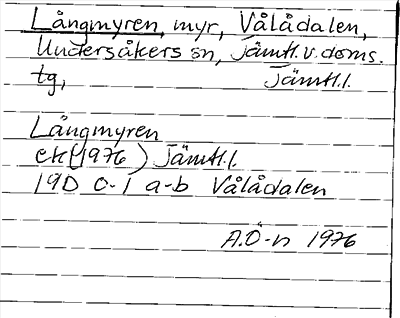 Långmyren, myr, Vålådalen,
Undersåkers sn, Jämtl.v.doms.
tg, Jämtl.l.
Långmyren
ek (1976) Jämtl.l.
19D 0-1 a-b Vålådalen
A.Ö-n 1976